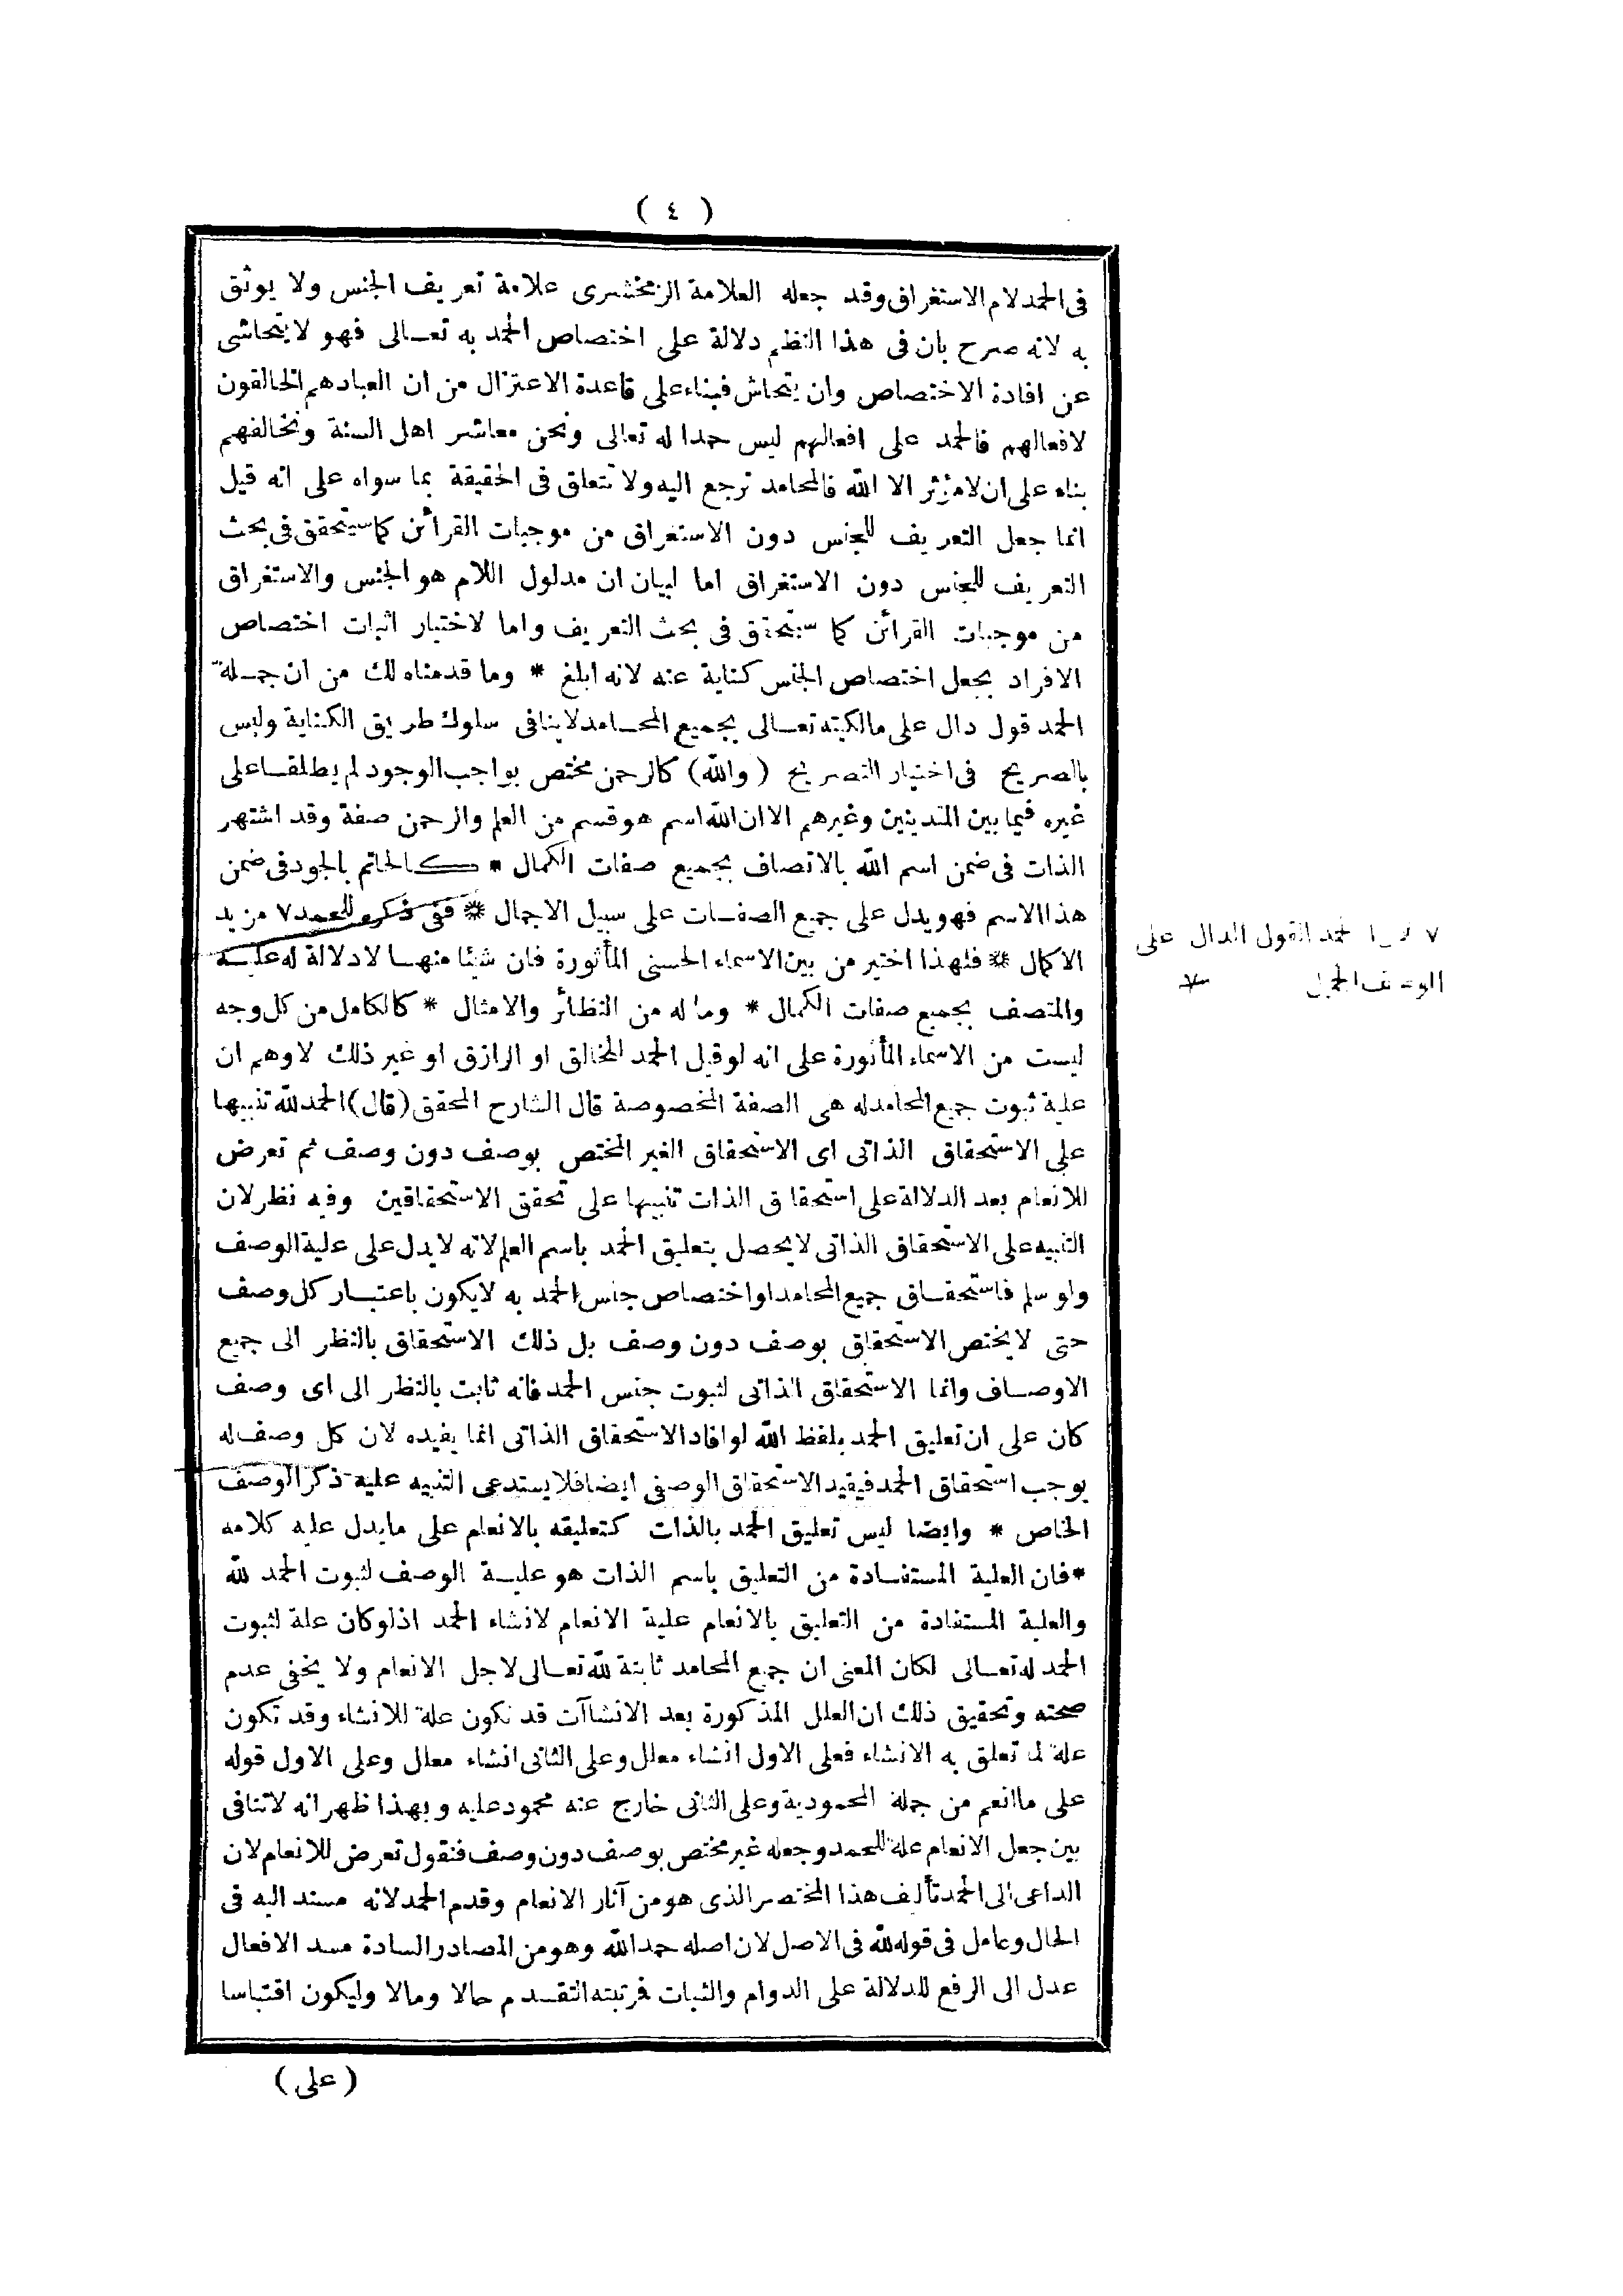 ( ٤ )
فى الحمد لام الاستغراق وقد جعله العلامة الزمخشرى علامة تعريف الجنس ولا يوثق
به لانه صرح بان فى هذا النظم دلالة على اختصاص الحمد به تعالى فهو لا يتحاشى
عن افادة الاختصاص وان يتحاش فبناء على قاعدة الاعتزال من ان العباد هم الخالقون
لافعالهم فالحمد على افعالهم ليس حمدا له تعالى ونحن معاشر اهل السنة ونخالفهم
بناء على ان لا مؤثر الا الله فالمحامد ترجع اليه ولا تتعلق فى الحقيقة بما سواه على انه قيل
انما جعل التعريف للجنس دون الاستغراق من موجبات القرائن كما ستحقق فى بحث
التعريف للجنس دون الاستغراق اما لبيان ان مدلول اللام هو الجنس والاستغراق
من موجبات القرائن كما ستحقق فى بحث التعريف واما لاختيار اثبات اختصاص
الافراد بجعل اختصاص الجنس كناية عنه لانه ابلغ * وما قدمناه لك من ان جملة
الحمد قول دال على مالكيته تعالى بجميع المحامد لا ينافى سلوك طريق الكناية وليس
بالصريح فى اختيار التصريح ( والله ) كالرحمن مختص بواجب الوجود لم يطلقا على
غيره فيما بين المتدينين وغيرهم الا ان الله اسم هو قسم من العلم والرحمن صفة وقد اشتهر
الذات فى ضمن اسم الله بالاتصاف بجميع صفات الكمال * كالحاتم بالجود فى ضمن
هذا الاسم فهو يدل على جميع الصفات على سبيل الاجمال * ففى ذكره للحمد ٧ مزيد
الاكمال * فلهذا اختير من بين الاسماء الحسنى المأثورة فان شيئا منها لا دلالة له عليه
والمتصف بجميع صفات الكمال * وما له من النظائر والامثال * كالكامل من كل وجه
ليست من الاسماء المأثورة على انه لو قيل الحمد للخالق او الرازق او غير ذلك لاوهم ان
علية ثبوت جميع المحامد له هى الصفة المخصوصة قال الشارح المحقق (قال) الحمد لله تنبيها
على الاستحقاق الذاتى اى الاستحقاق الغير المختص بوصف دون وصف ثم تعرض
للانعام بعد الدلالة على استحقاق الذات تنبيها على تحقق الاستحقاقين وفيه نظر لان
التنبيه على الاستحقاق الذاتى لا يحصل بتعليق الحمد باسم العلم لانه لا يدل على علية الوصف
ولو سلم فاستحقاق جميع المحامد او اختصاص جنس الحمد به لا يكون باعتبار كل وصف
حتى لا يختص الاستحقاق بوصف دون وصف بل ذلك الاستحقاق بالنظر الى جميع
الاوصاف وانما الاستحقاق الذاتى لثبوت جنس الحمد فانه ثابت بالنظر الى اى وصف
كان على ان تعليق الحمد بلفظ الله لو افاد الاستحقاق الذاتى انما يفيده لان كل وصف له
يوجب استحقاق الحمد فيفيد الاستحقاق الوصفى ايضا فلا يستدعى التنبيه عليه ذكر الوصف
الخاص * وايضا ليس تعليق الحمد بالذات كتعليقه بالانعام على ما يدل عليه كلامه
* فان العلية المستفادة من التعليق باسم الذات هو علية الوصف لثبوت الحمد لله
والعلية المستفادة من التعليق بالانعام علية الانعام لانشاء الحمد اذ لو كان علة لثبوت
الحمد له تعالى لكان المعنى ان جميع المحامد ثابتة لله تعالى لاجل الانعام ولا يخفى عدم
صحته وتحقيق ذلك ان العلل المذكورة بعد الانشاآت قد تكون علة للانشاء وقد تكون
علة لما تعلق به الانشاء فعلى الاول انشاء معلل وعلى الثانى انشاء معلل وعلى الاول قوله
على ما انعم من جملة المحمودية وعلى الثانى خارج عنه محمود عليه وبهذا ظهر انه لا تنافى
بين جعل الانعام علة للحمد وجعله غير مختص بوصف دون وصف فنقول تعرض للانعام لان
الداعى الى الحمد تأليف هذا المختصر الذى هو من آثار الانعام وقدم الحمد لانه مسند اليه فى
الحال وعامل فى قوله لله فى الاصل لان اصله حمد الله وهو من المصادر السادة مسد الافعال
عدل الى الرفع للدلالة على الدوام والثبات فرتبته التقدم حالا ومالا وليكون اقتباسا
( على )
٧ الحمد القول الدال على
الوصف الجميل